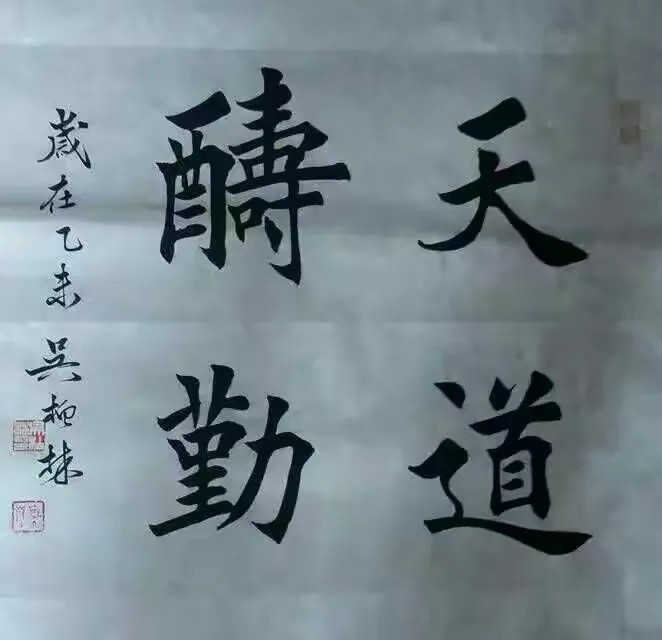 天道
醻勤
歲在乙未 吳